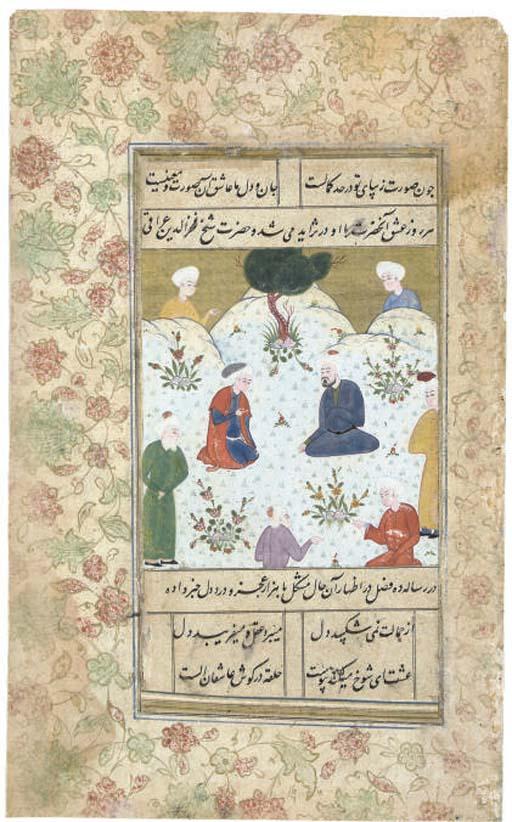 چون صورت زیبای تو در حد کمالست جان و دل ما عاشق آن صورت و معنیست
هر روز عشق آنحضرت با او در تزاید می شد و حضرت شیخ فخر الدین عراقی
در رساله ده فصل در اظهار آن حال مشکل با هزار عجز و درد دل خبر داده
از جمالت نمی شکیبد دل میبرد عقل و میفریبد دل
عشقت ای شوخ حلقه در کوش عاشقان الست